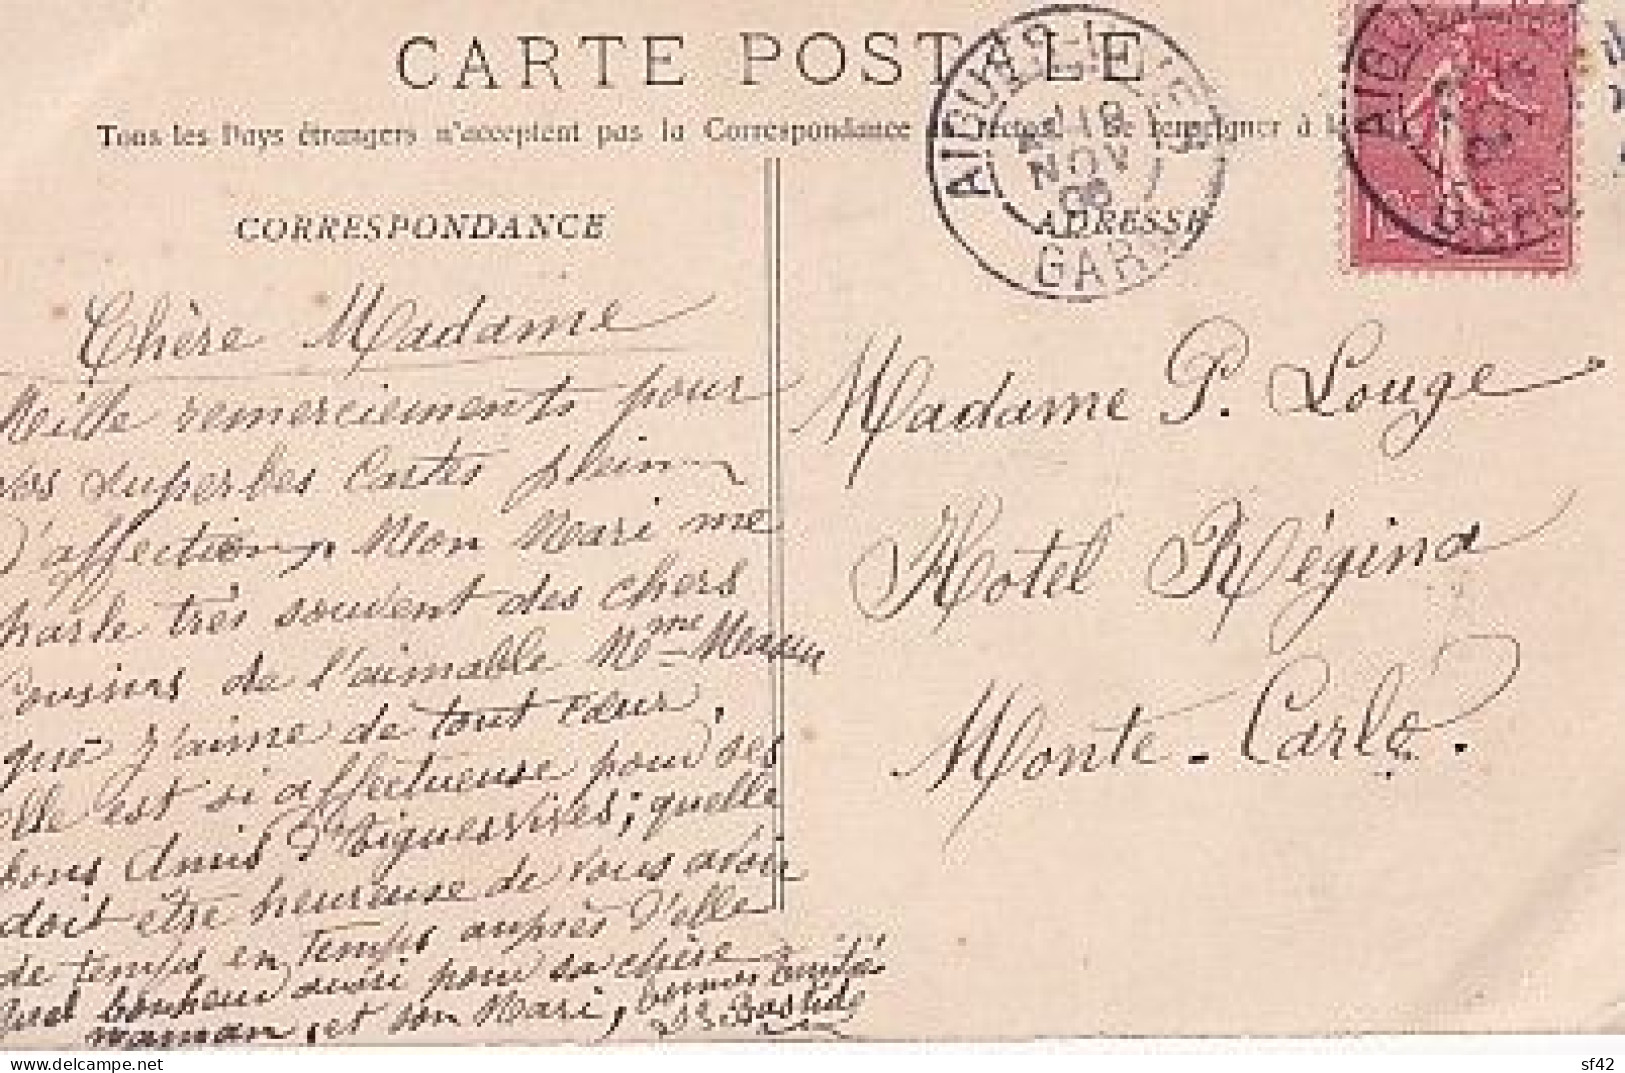 CARTE POSTALE
Tous les Pays étrangers n'acceptent pas la Correspondance au recto. (Se renseigner à la
AIGUES-VIVES
NOV
06
GARD
CORRESPONDANCE
ADRESSE
Chère Madame
Mille remerciements pour
vos superbes Cartes plein
d'affections. Mon Mari me
parle très souvent des chers
Cousins de l'aimable Mme
que j'aime de tout cœur,
elle est si affectueuse pour ses
bons Amis d'Aiguesvives; quelle
doit être heureuse de vous avoir
de temps en temps auprès d'elle
quel bonheur aussi pour sa chère
maman, et son Mari, bonnes amitiés
Bastide
Madame P. Louge
Hotel Régina
Monte-Carlo.
delcampe.net
sf42